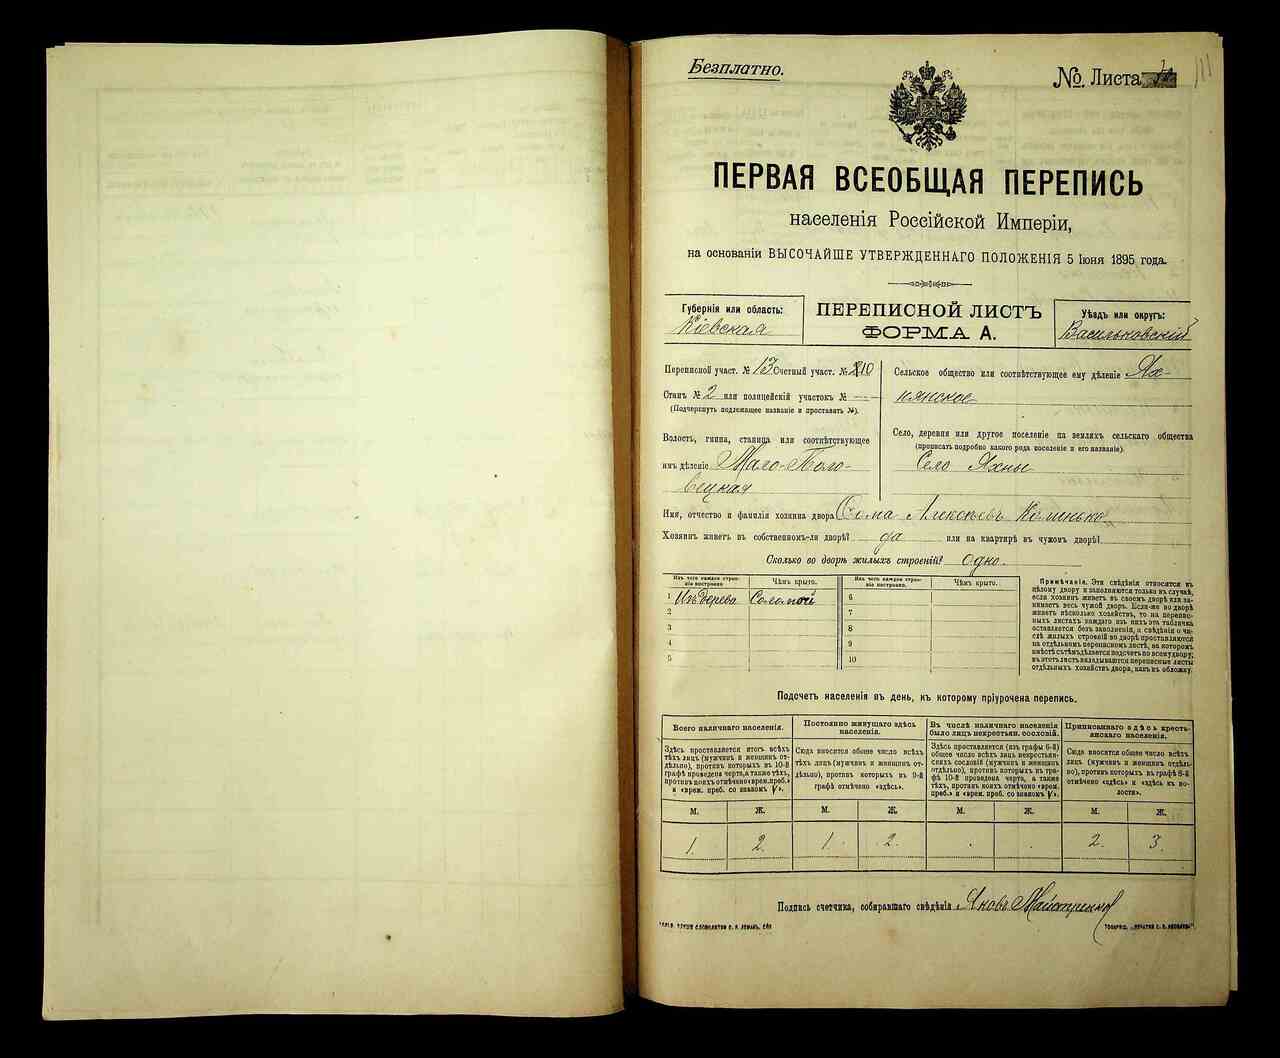 Безплатно.
№. Листа
111
ПЕРВАЯ ВСЕОБЩАЯ ПЕРЕПИСЬ
населенія Россійской Имперіи,
на основаніи ВЫСОЧАЙШЕ УТВЕРЖДЕННАГО ПОЛОЖЕНІЯ 5 Іюня 1895 года.
Губернія или область:
Кіевская
ПЕРЕПИСНОЙ ЛИСТЪ
ФОРМА А.
Уѣздъ или округъ:
Васильковскій
Переписной участ. № 13 Счетный участ. № 10
Станъ № 2 или полицейскій участокъ № —
(Подчеркнуть подлежащее названіе и проставить №).
Волость, гмина, станица или соотвѣтствующее
имъ дѣленіе Мало-Поло-
вецкая
Сельское общество или соотвѣтствующее ему дѣленіе Ях-
нянское
Село, деревня или другое поселеніе на земляхъ сельскаго общества
(прописать подробно какого рода поселеніе и его названіе).
Село Яхны
Имя, отчество и фамилія хозяина двора Сема Алексѣевъ
Хозяинъ живетъ въ собственномъ-ли дворѣ? да или на квартирѣ въ чужомъ дворѣ?
Сколько во дворѣ жилыхъ строеній? одно.
Изъ чего каждое строе-
ніе построено.
Чѣмъ крыто.
1 Изъ дерева Соломой
2
3
4
5
Изъ чего каждое строе-
ніе построено.
Чѣмъ крыто.
6
7
8
9
10
Примѣчанія. Эти свѣдѣнія относятся къ
цѣлому двору и заполняются только въ случаѣ,
если хозяинъ живетъ въ своемъ дворѣ или за-
нимаетъ весь чужой дворъ. Если-же во дворѣ
живетъ нѣсколько хозяйствъ, то на перепис-
ныхъ листахъ каждаго изъ нихъ эта табличка
оставляется безъ заполненія, а свѣдѣнія о чи-
слѣ жилыхъ строеній во дворѣ проставляются
на отдѣльномъ переписномъ листѣ, на которомъ
вмѣстѣ съ тѣмъ дѣлается подсчетъ по всему двору;
въ этотъ листъ вкладываются переписные листы
отдѣльныхъ хозяйствъ двора, какъ въ обложку.
Подсчетъ населенія въ день, къ которому пріурочена перепись.
Всего наличнаго населенія.
Здѣсь проставляется итогъ всѣхъ
тѣхъ лицъ (мужчинъ и женщинъ от-
дѣльно), противъ которыхъ въ 10-й
графѣ проведена черта, а также тѣхъ,
противъ коихъ отмѣчено «врем. преб.»
и «врем. преб. со знакомъ V».
Постоянно живущаго здѣсь
населенія.
Сюда вносится общее число всѣхъ
тѣхъ лицъ (мужчинъ и женщинъ от-
дѣльно), противъ которыхъ въ 9-й
графѣ отмѣчено «здѣсь».
Въ числѣ наличнаго населенія
было лицъ некрестьян. сословій.
Здѣсь проставляется (изъ графы 6-й)
общее число всѣхъ лицъ некрестьян-
скихъ сословій (мужчинъ и женщинъ
отдѣльно), противъ которыхъ въ гра-
фѣ 10-й проведена черта, а также
тѣхъ, противъ коихъ отмѣчено «врем.
преб.» и «врем. преб. со знакомъ V».
Приписаннаго здѣсь кресть-
янскаго населенія.
Сюда вносится общее число всѣхъ
лицъ (мужчинъ и женщинъ отдѣль-
но), противъ которыхъ въ графѣ 8-й
отмѣчено «здѣсь» и «здѣсь въ во-
лости».
М. Ж. М. Ж. М. Ж. М. Ж.
1. 2. 1. 2. . . 2. 3.
Подпись счетчика, собиравшаго свѣдѣнія Яковъ